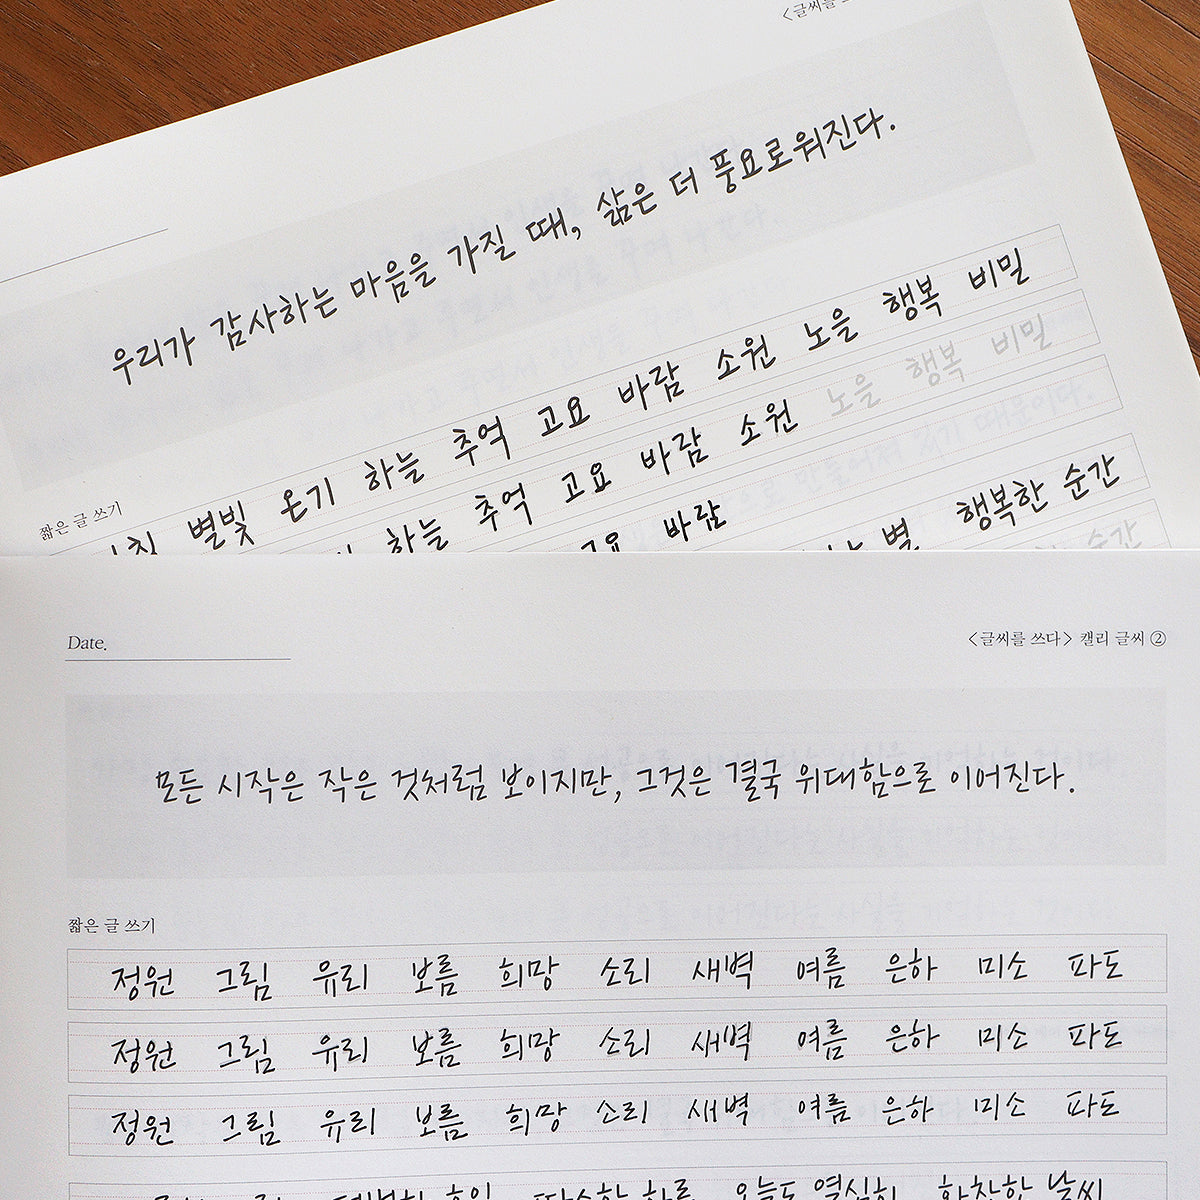 <글씨를 쓰
우리가 감사하는 마음을 가질 때, 삶은 더 풍요로워진다.
짧은 글 쓰기
별빛 온기 하늘 추억 고요 바람 소원 노을 행복 비밀
하늘 추억 고요 바람 소원 노을 행복 비밀
고요 바람
별 행복한 순간
순간
Date.
<글씨를 쓰다> 캘리 글씨 ②
모든 시작은 작은 것처럼 보이지만, 그것은 결국 위대함으로 이어진다.
짧은 글 쓰기
정원 그림 유리 보름 희망 소리 새벽 여름 은하 미소 파도
정원 그림 유리 보름 희망 소리 새벽 여름 은하 미소 파도
정원 그림 유리 보름 희망 소리 새벽 여름 은하 미소 파도
따스한 하루 오늘도 열심히 화창한 날씨